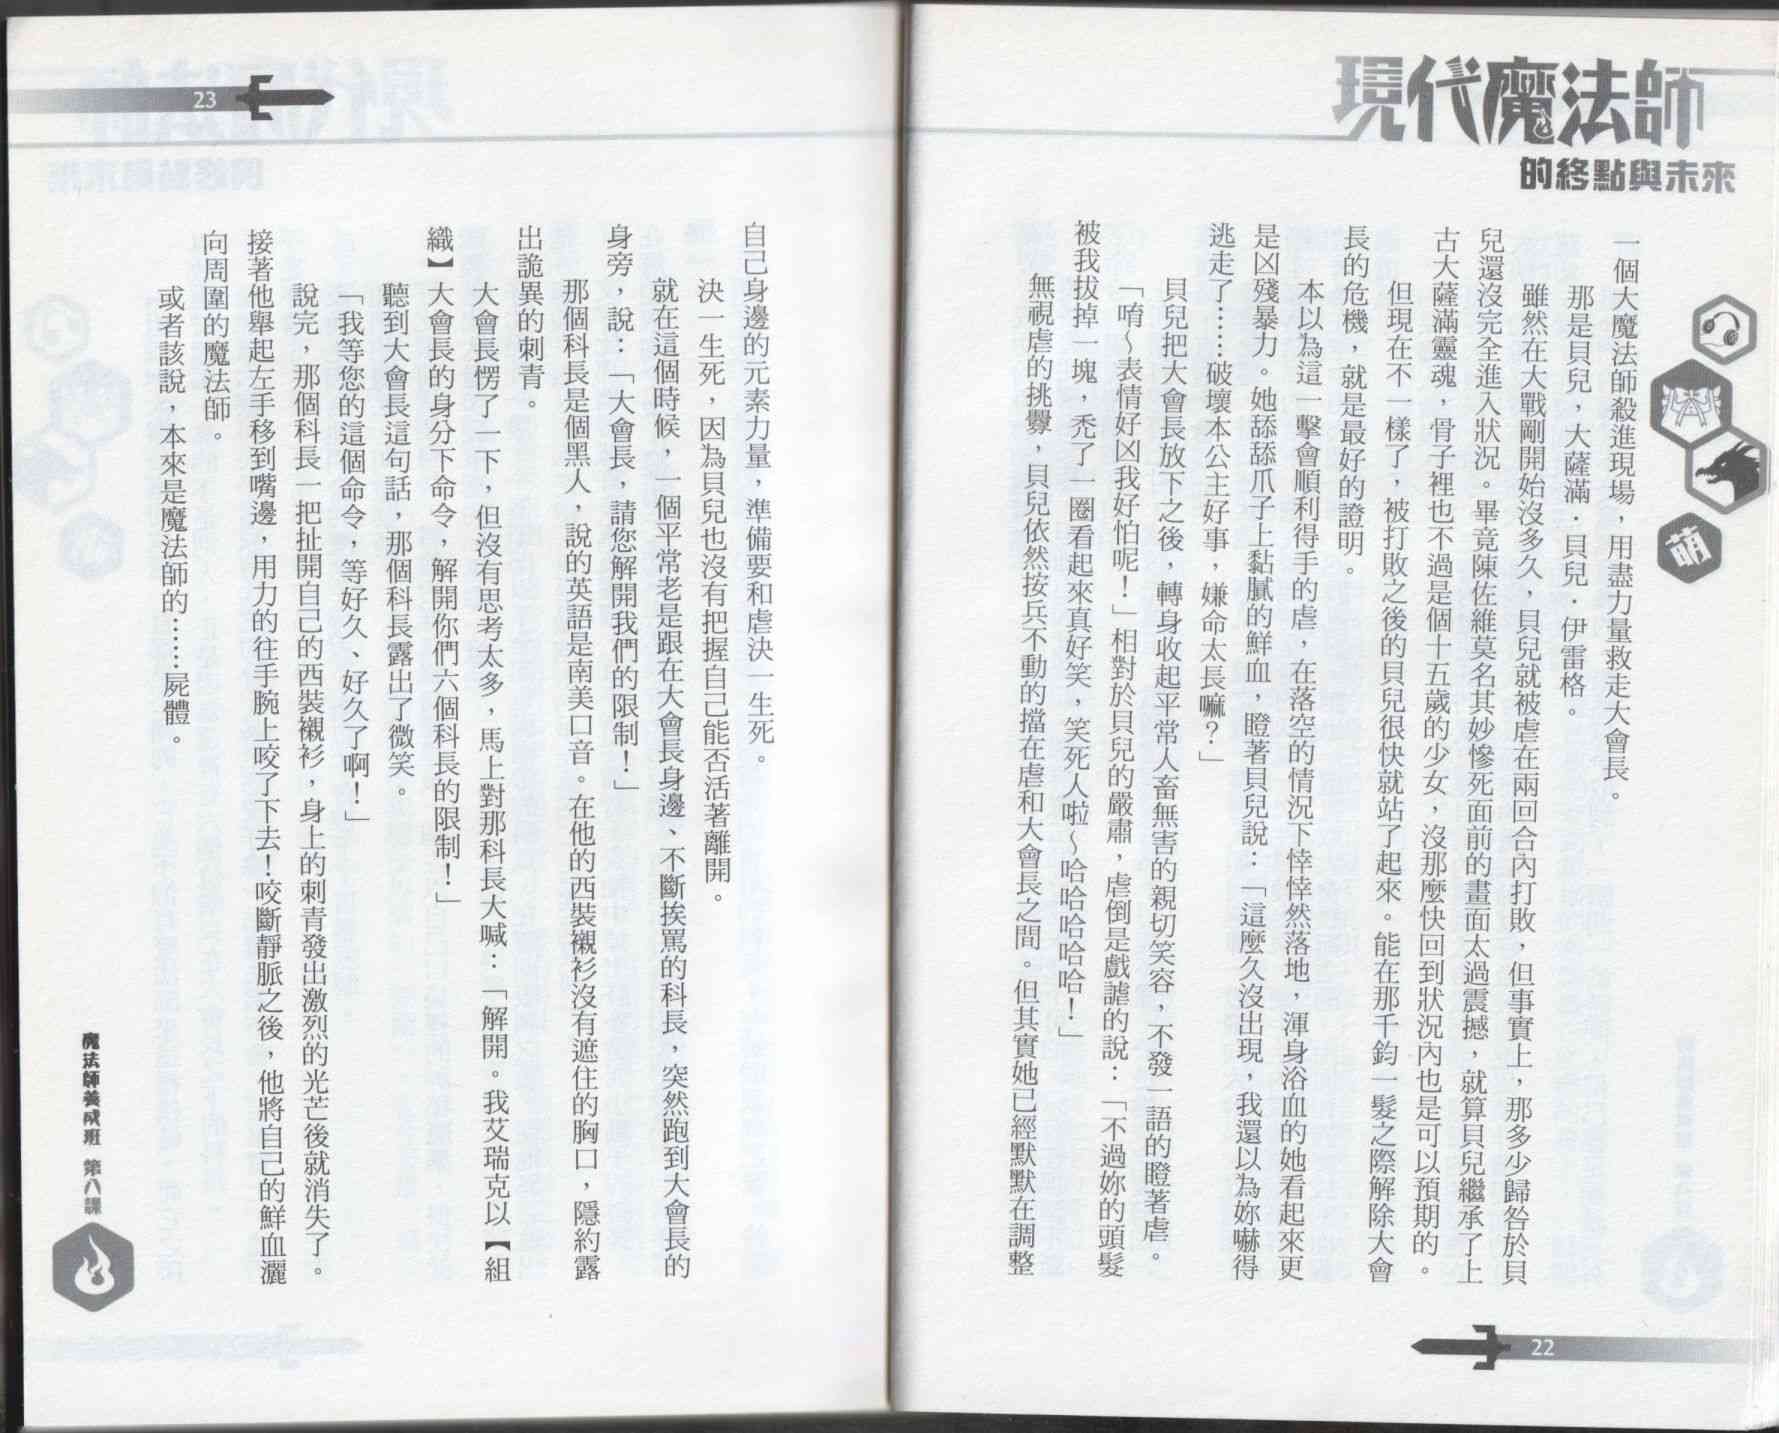 現代魔法師
的終點與未來
萌
一個大魔法師殺進現場，用盡力量救走大會長。
那是貝兒，大薩滿．貝兒．伊雷格。
雖然在大戰剛開始沒多久，貝兒就被虐在兩回合內打敗，但事實上，那多少歸咎於貝
兒還沒完全進入狀況。畢竟陳佐維莫名其妙慘死面前的畫面太過震撼，就算貝兒繼承了上
古大薩滿靈魂，骨子裡也不過是個十五歲的少女，沒那麼快回到狀況內也是可以預期的。
但現在不一樣了，被打敗之後的貝兒很快就站了起來。能在那千鈞一髮之際解除大會
長的危機，就是最好的證明。
本以為這一擊會順利得手的虐，在落空的情況下悻悻然落地，渾身浴血的她看起來更
是凶殘暴力。她舔舔爪子上黏膩的鮮血，瞪著貝兒說：「這麼久沒出現，我還以為妳嚇得
逃走了……破壞本公主好事，嫌命太長嘛？」
貝兒把大會長放下之後，轉身收起平常人畜無害的親切笑容，不發一語的瞪著虐。
「唷～表情好凶我好怕呢！」相對於貝兒的嚴肅，虐倒是戲謔的說：「不過妳的頭髮
被我拔掉一塊，禿了一圈看起來真好笑，笑死人啦～哈哈哈哈哈！」
無視虐的挑釁，貝兒依然按兵不動的擋在虐和大會長之間。但其實她已經默默在調整
22
23
自己身邊的元素力量，準備要和虐決一生死。
決一生死，因為貝兒也沒有把握自己能否活著離開。
就在這個時候，一個平常老是跟在大會長身邊、不斷挨罵的科長，突然跑到大會長的
身旁，說：「大會長，請您解開我們的限制！」
那個科長是個黑人，說的英語是南美口音。在他的西裝襯衫沒有遮住的胸口，隱約露
出詭異的刺青。
大會長愣了一下，但沒有思考太多，馬上對那科長大喊：「解開。我艾瑞克以【組
織】大會長的身分下命令，解開你們六個科長的限制！」
聽到大會長這句話，那個科長露出了微笑。
「我等您的這個命令，等好久、好久了啊！」
說完，那個科長一把扯開自己的西裝襯衫，身上的刺青發出激烈的光芒後就消失了。
接著他舉起左手移到嘴邊，用力的往手腕上咬了下去！咬斷靜脈之後，他將自己的鮮血灑
向周圍的魔法師。
或者該說，本來是魔法師的……屍體。
魔法師養成班 第八課